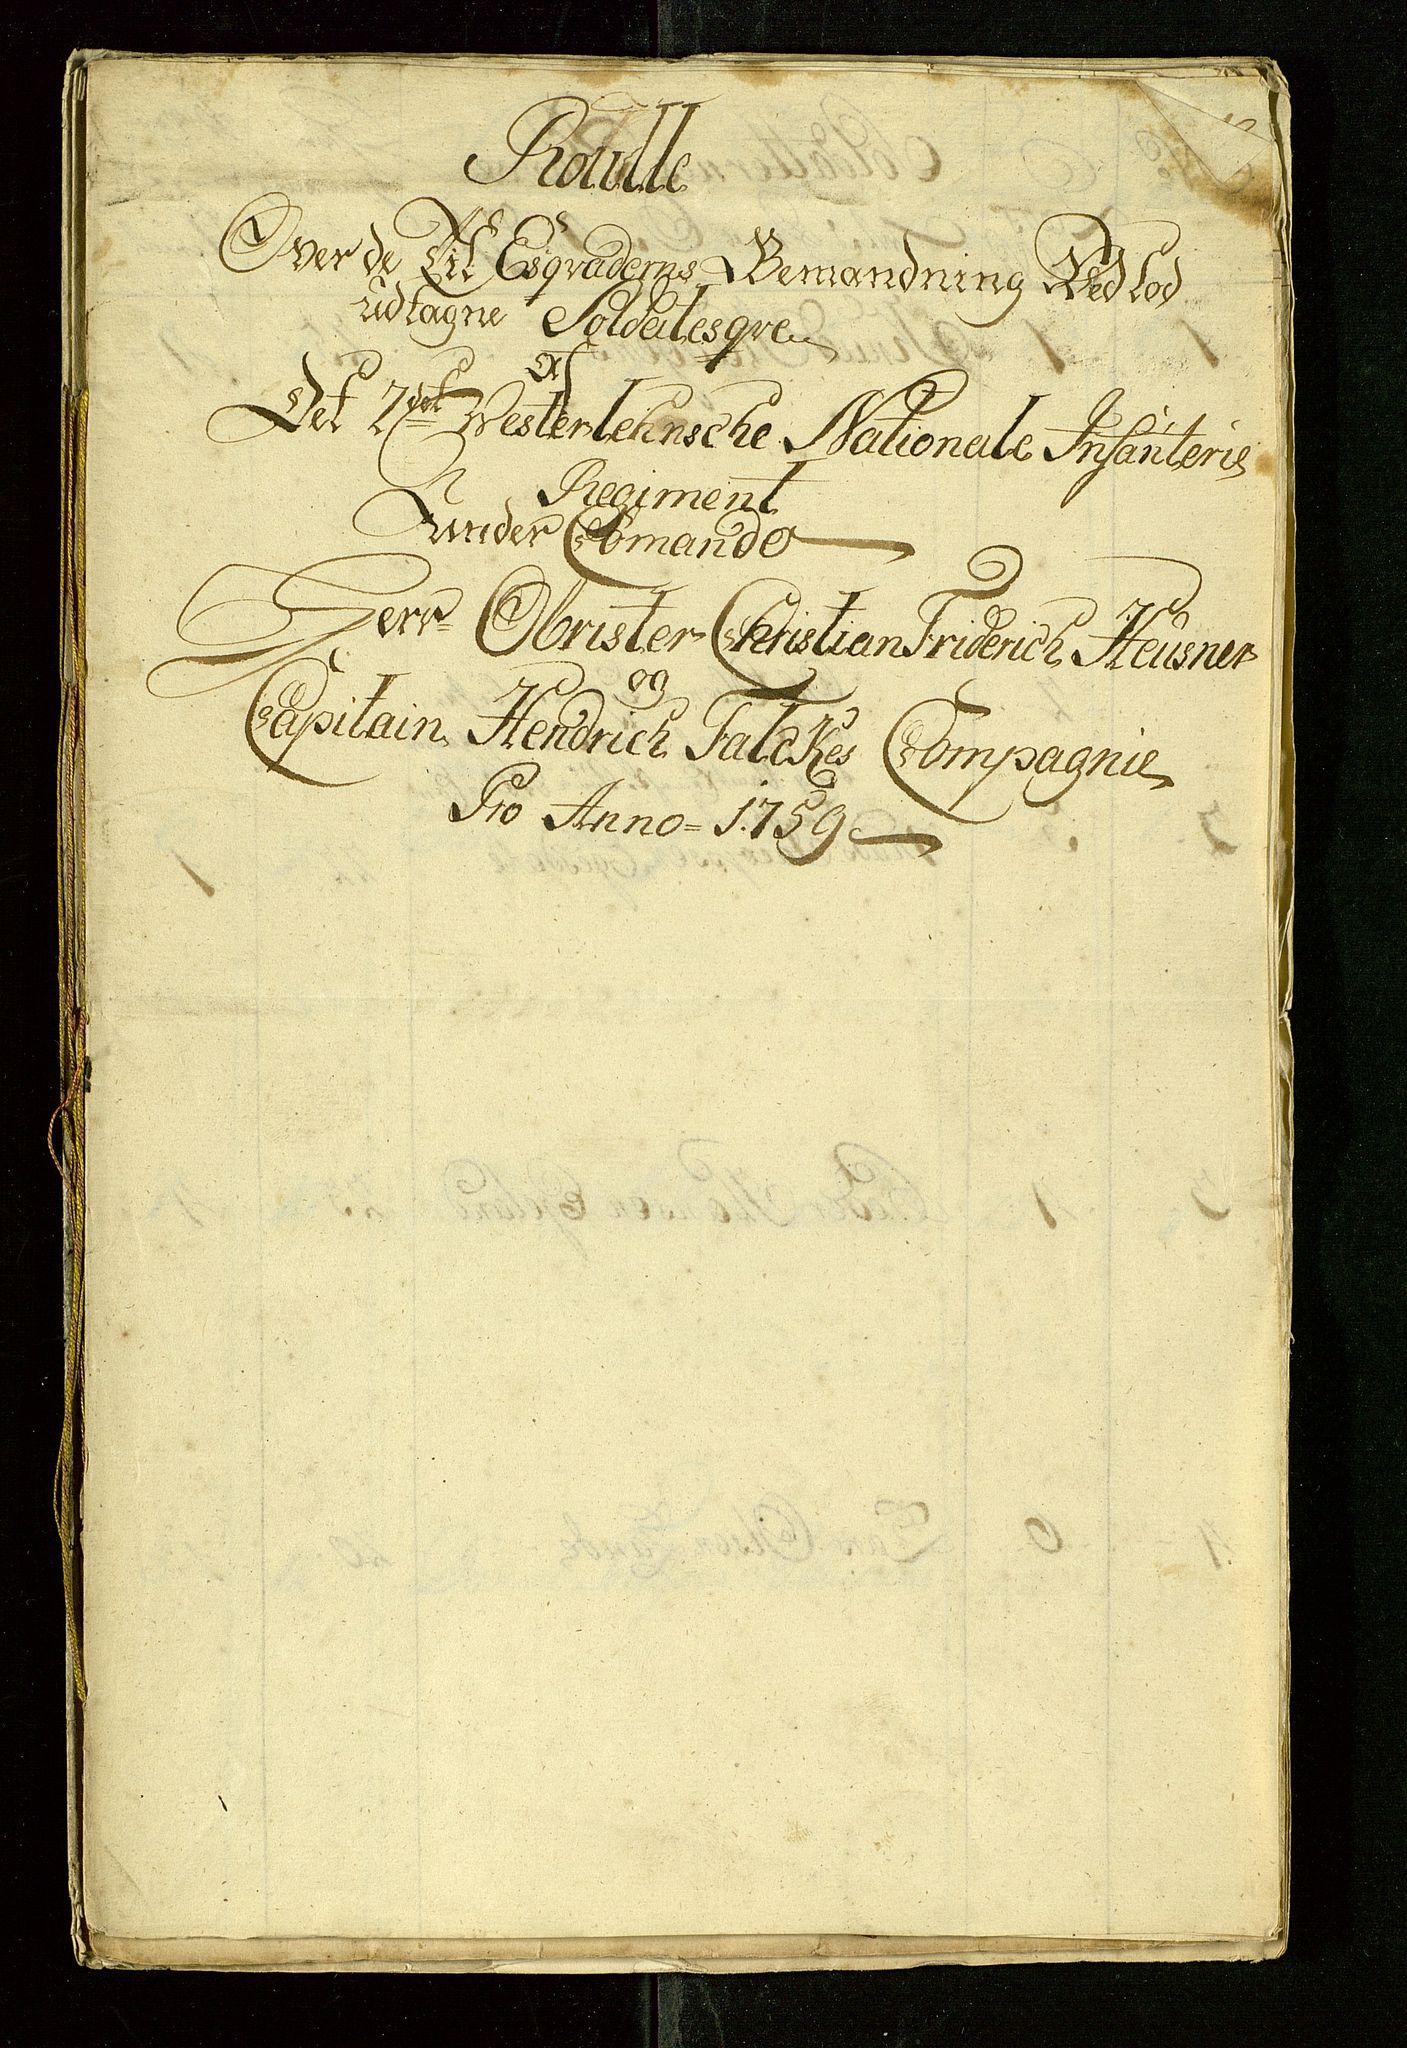 Roulle
Over de Til Esqvaderns Bemandning Ved lod
udtagne Soldatesqve
af
Det 2det Westerlehnsche Nationale Infanterie
Regiment
under Comando
Herr Obrister Christian Friderich Heüsner
og
Capitain Hendrich Falckes Compagnie
Pro Anno = 1759